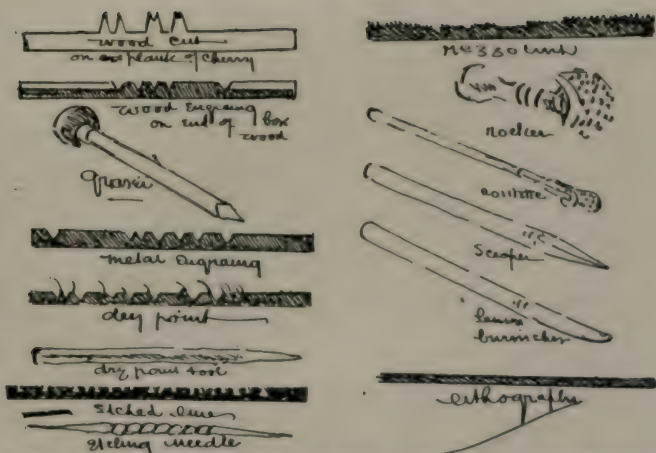 wood cut
on plank of cherry
wood Engraving
on end of box
wood
Graver
metal Engraving
dry point
dry point tool
Etched lines
Etching needle
Mezzotint
rocker
roulette
Scraper
burnisher
Lithographs